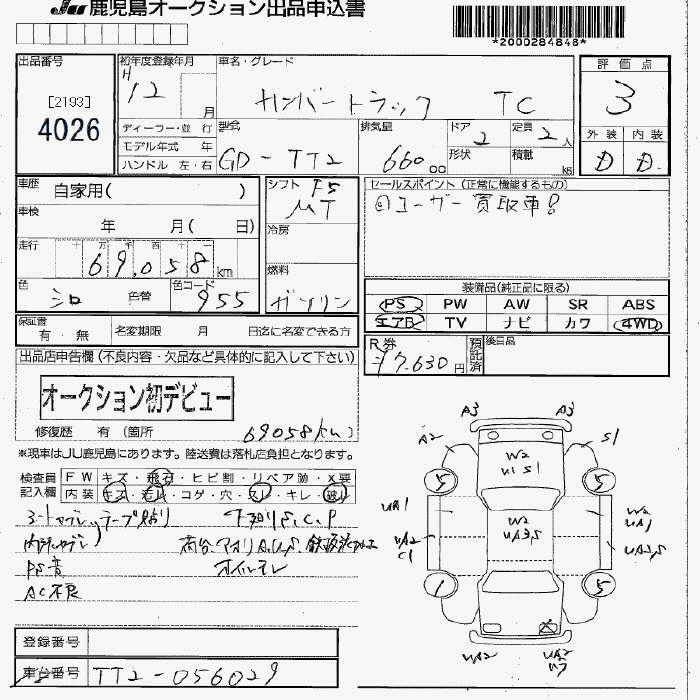 JU 鹿児島オークション出品申込書
*2000284848*
出品番号
[2193]
4026
初年度登録年月
H12 月
ディーラー・並 行
モデル年式 年
ハンドル 左・右
車名・グレード
サンバートラック TC
型式
GD-TT2
排気量
660 cc
ドア 2
形状
定員 2人
積載 kg
評価点
3
外装 内装
D D
車歴 自家用( )
車検
年 月( 日)
走行 十 万 千 百 一
69,058 km
色 シロ 色替
色コード 955
シフト F5
MT
冷房
燃料
ガソリン
セールスポイント (正常に機能するもの)
◎ユーザー買取車!
装備品(純正品に限る)
PS PW AW SR ABS
エアB TV ナビ カワ 4WD
保証書
有・無
名変期限 月 日迄に名変できる方
R券
¥7,630円
預託済
後日品
出品店申告欄(不良内容・欠品など具体的に記入して下さい)
オークション初デビュー
修復歴 有(箇所
69058km)
※現車はJU鹿児島にあります。陸送費は落札店負担となります。
検査員
記入欄
FW キズ・飛石・ヒビ割・リペア跡・X要
内装・キズ・汚れ・コゲ・穴・スレ・キレ・破れ
PS音
オイルモレ
AC不良
A3 A3
A2 S1
W2
U1 S1
5 5
UA1
W2
UA1
W2
UA3,S
UA2
C1
UA2,S
1 5
UA2
UA2
W7
登録番号
車台番号 TT2-056029